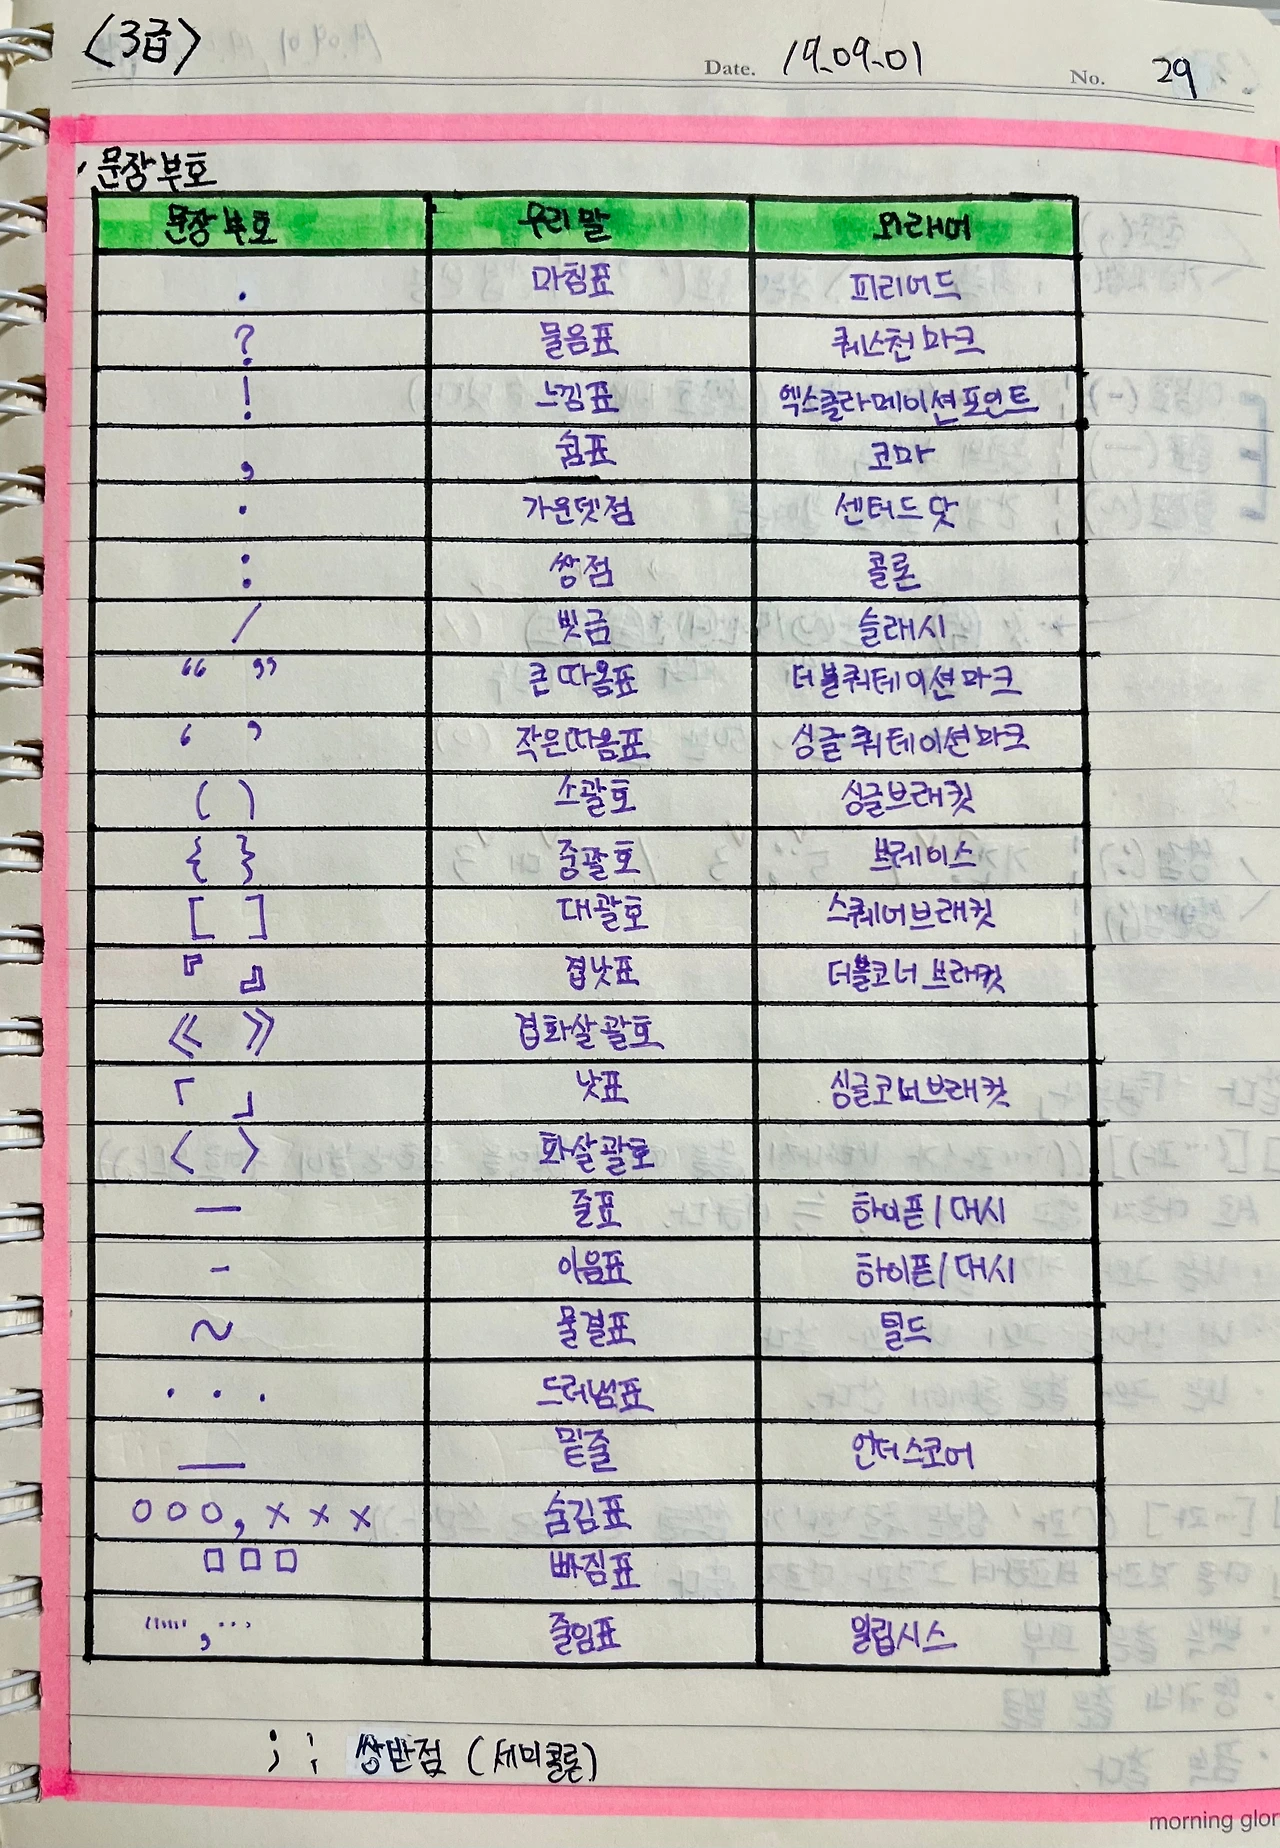 <3급>
Date. 19.09.01 No. 29
· 문장부호
문장부호 우리말 외래어
. 마침표 피리어드
? 물음표 퀘스천마크
! 느낌표 엑스클라메이션포인트
, 쉼표 코마
· 가운뎃점 센터드닷
: 쌍점 콜론
/ 빗금 슬래시
“ ” 큰따옴표 더블쿼테이션마크
‘ ’ 작은따옴표 싱글쿼테이션마크
( ) 소괄호 싱글브래킷
{ } 중괄호 브레이스
[ ] 대괄호 스퀘어브래킷
『 』 겹낫표 더블코너브래킷
《 》 겹화살괄호
「 」 낫표 싱글코너브래킷
〈 〉 화살괄호
— 줄표 하이픈/대시
- 이음표 하이픈/대시
~ 물결표 틸드
· · · 드러냄표
_ 밑줄 언더스코어
○○○, ××× 숨김표
□□□ 빠짐표
……, … 줄임표 일립시스
; ; 쌍반점 (세미콜론)
morning glor